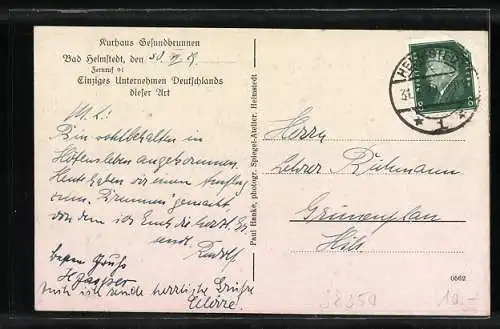 Kurhaus Gesundbrunnen
Bad Helmstedt, den 30. 29.
Fernruf 91
Einziges Unternehmen Deutschlands
dieser Art
M. L.!
Bin wohlbehalten in
Hötensleben angekommen
Heute haben wir einen Ausflug
zum Brunnen gemacht
von dem ich Euch die herzl. Gr.
send. Rudolf
besten Gruß
H. Jasper
Auch ich sende herzliche Grüße
Paul Hanke, photogr. Spiegel-Atelier, Helmstedt
HELMSTEDT
31
* 1 *
8 8
Herrn
Lehrer
Grünenplan
Hils
0562
10,-